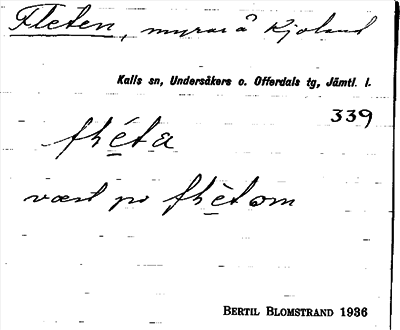 Fleten, myrar å Kjoland
Kalls sn, Undersåkers o. Offerdals tg, Jämtl. l.
339
fhèta
væst po fhètom
BERTIL BLOMSTRAND 1936